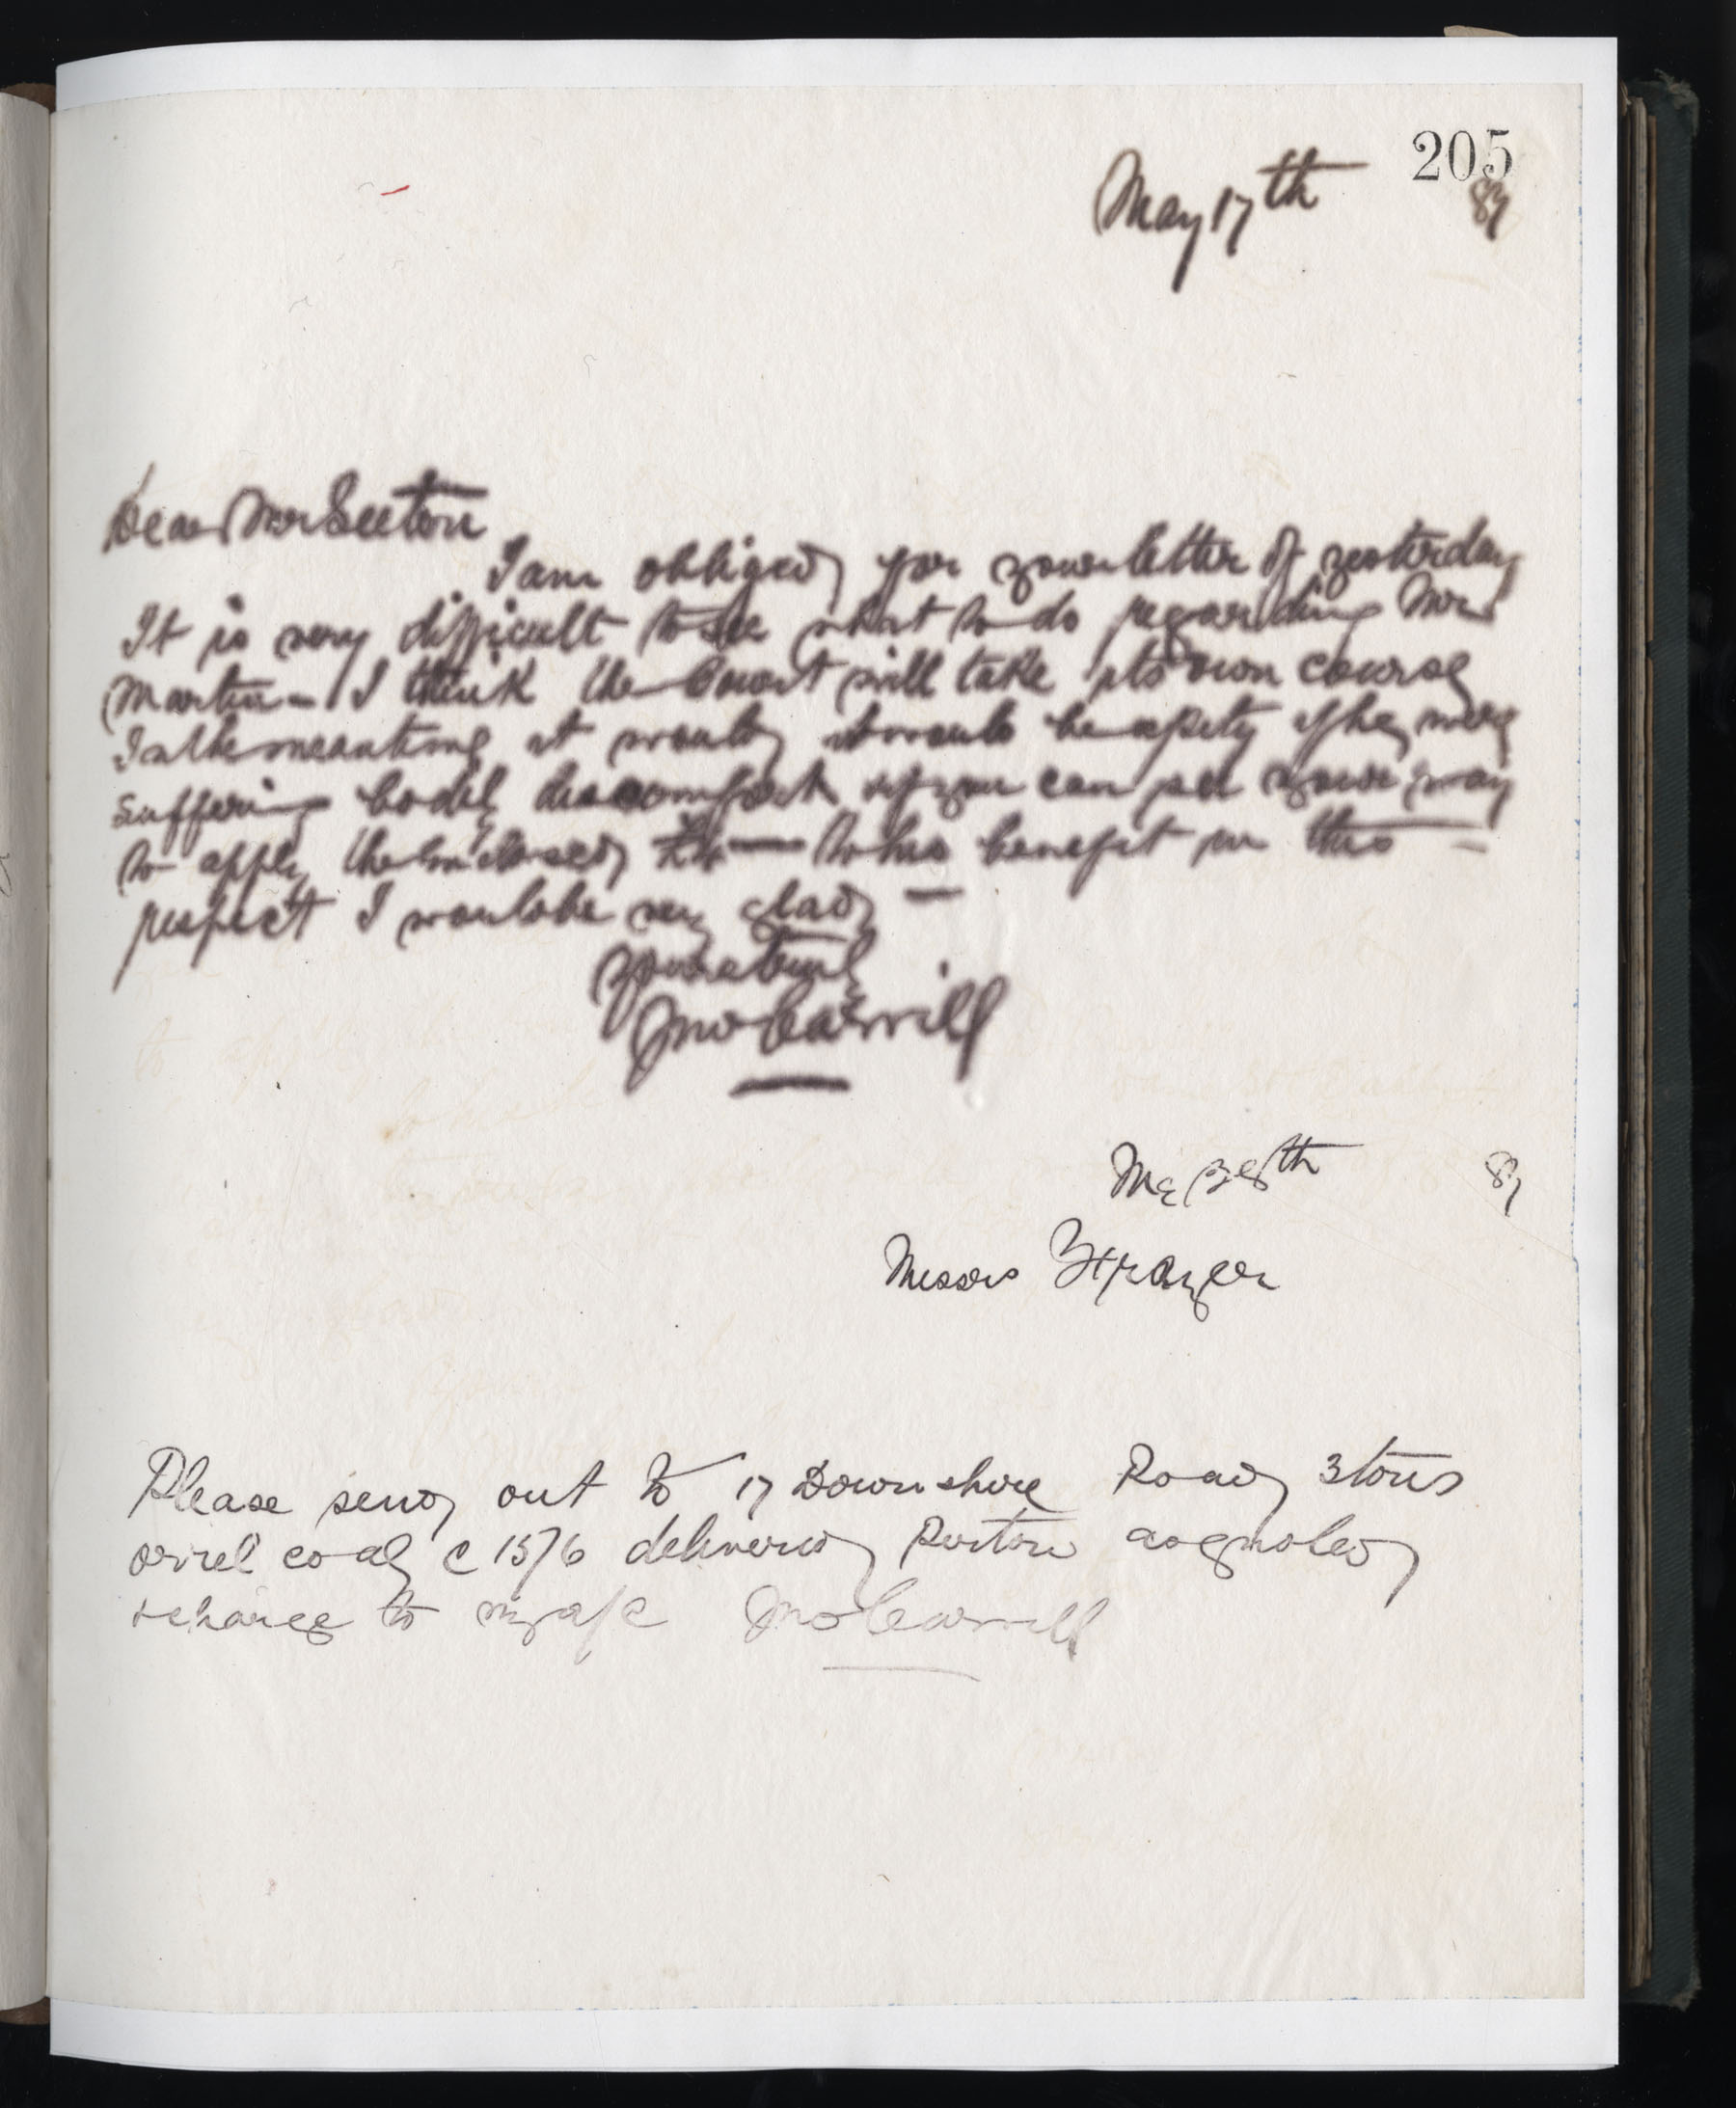 205
May 17th 87
Dear Mr Seeton
I am obliged for your letter of yesterday
It is very difficult to see what to do regarding Mr
Martin - I think the Court will take its own course
In the meantime it would it would be a pity if he were
suffering bodily discomfort & if you can see your way
to apply the enclosed £4 — to his benefit in this —
respect I would be very glad —
Yours truly
Jno Carvill
May 28th 87
Messrs
Please send out to 17 Downshire Road 3 tons
orrel coal @ 15/6 delivered Per ton
& charge to my a/c Jno Carvill